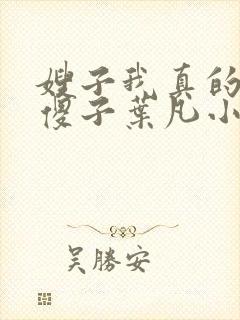 嫂子我真的
傻子葉凡小
吴勝安